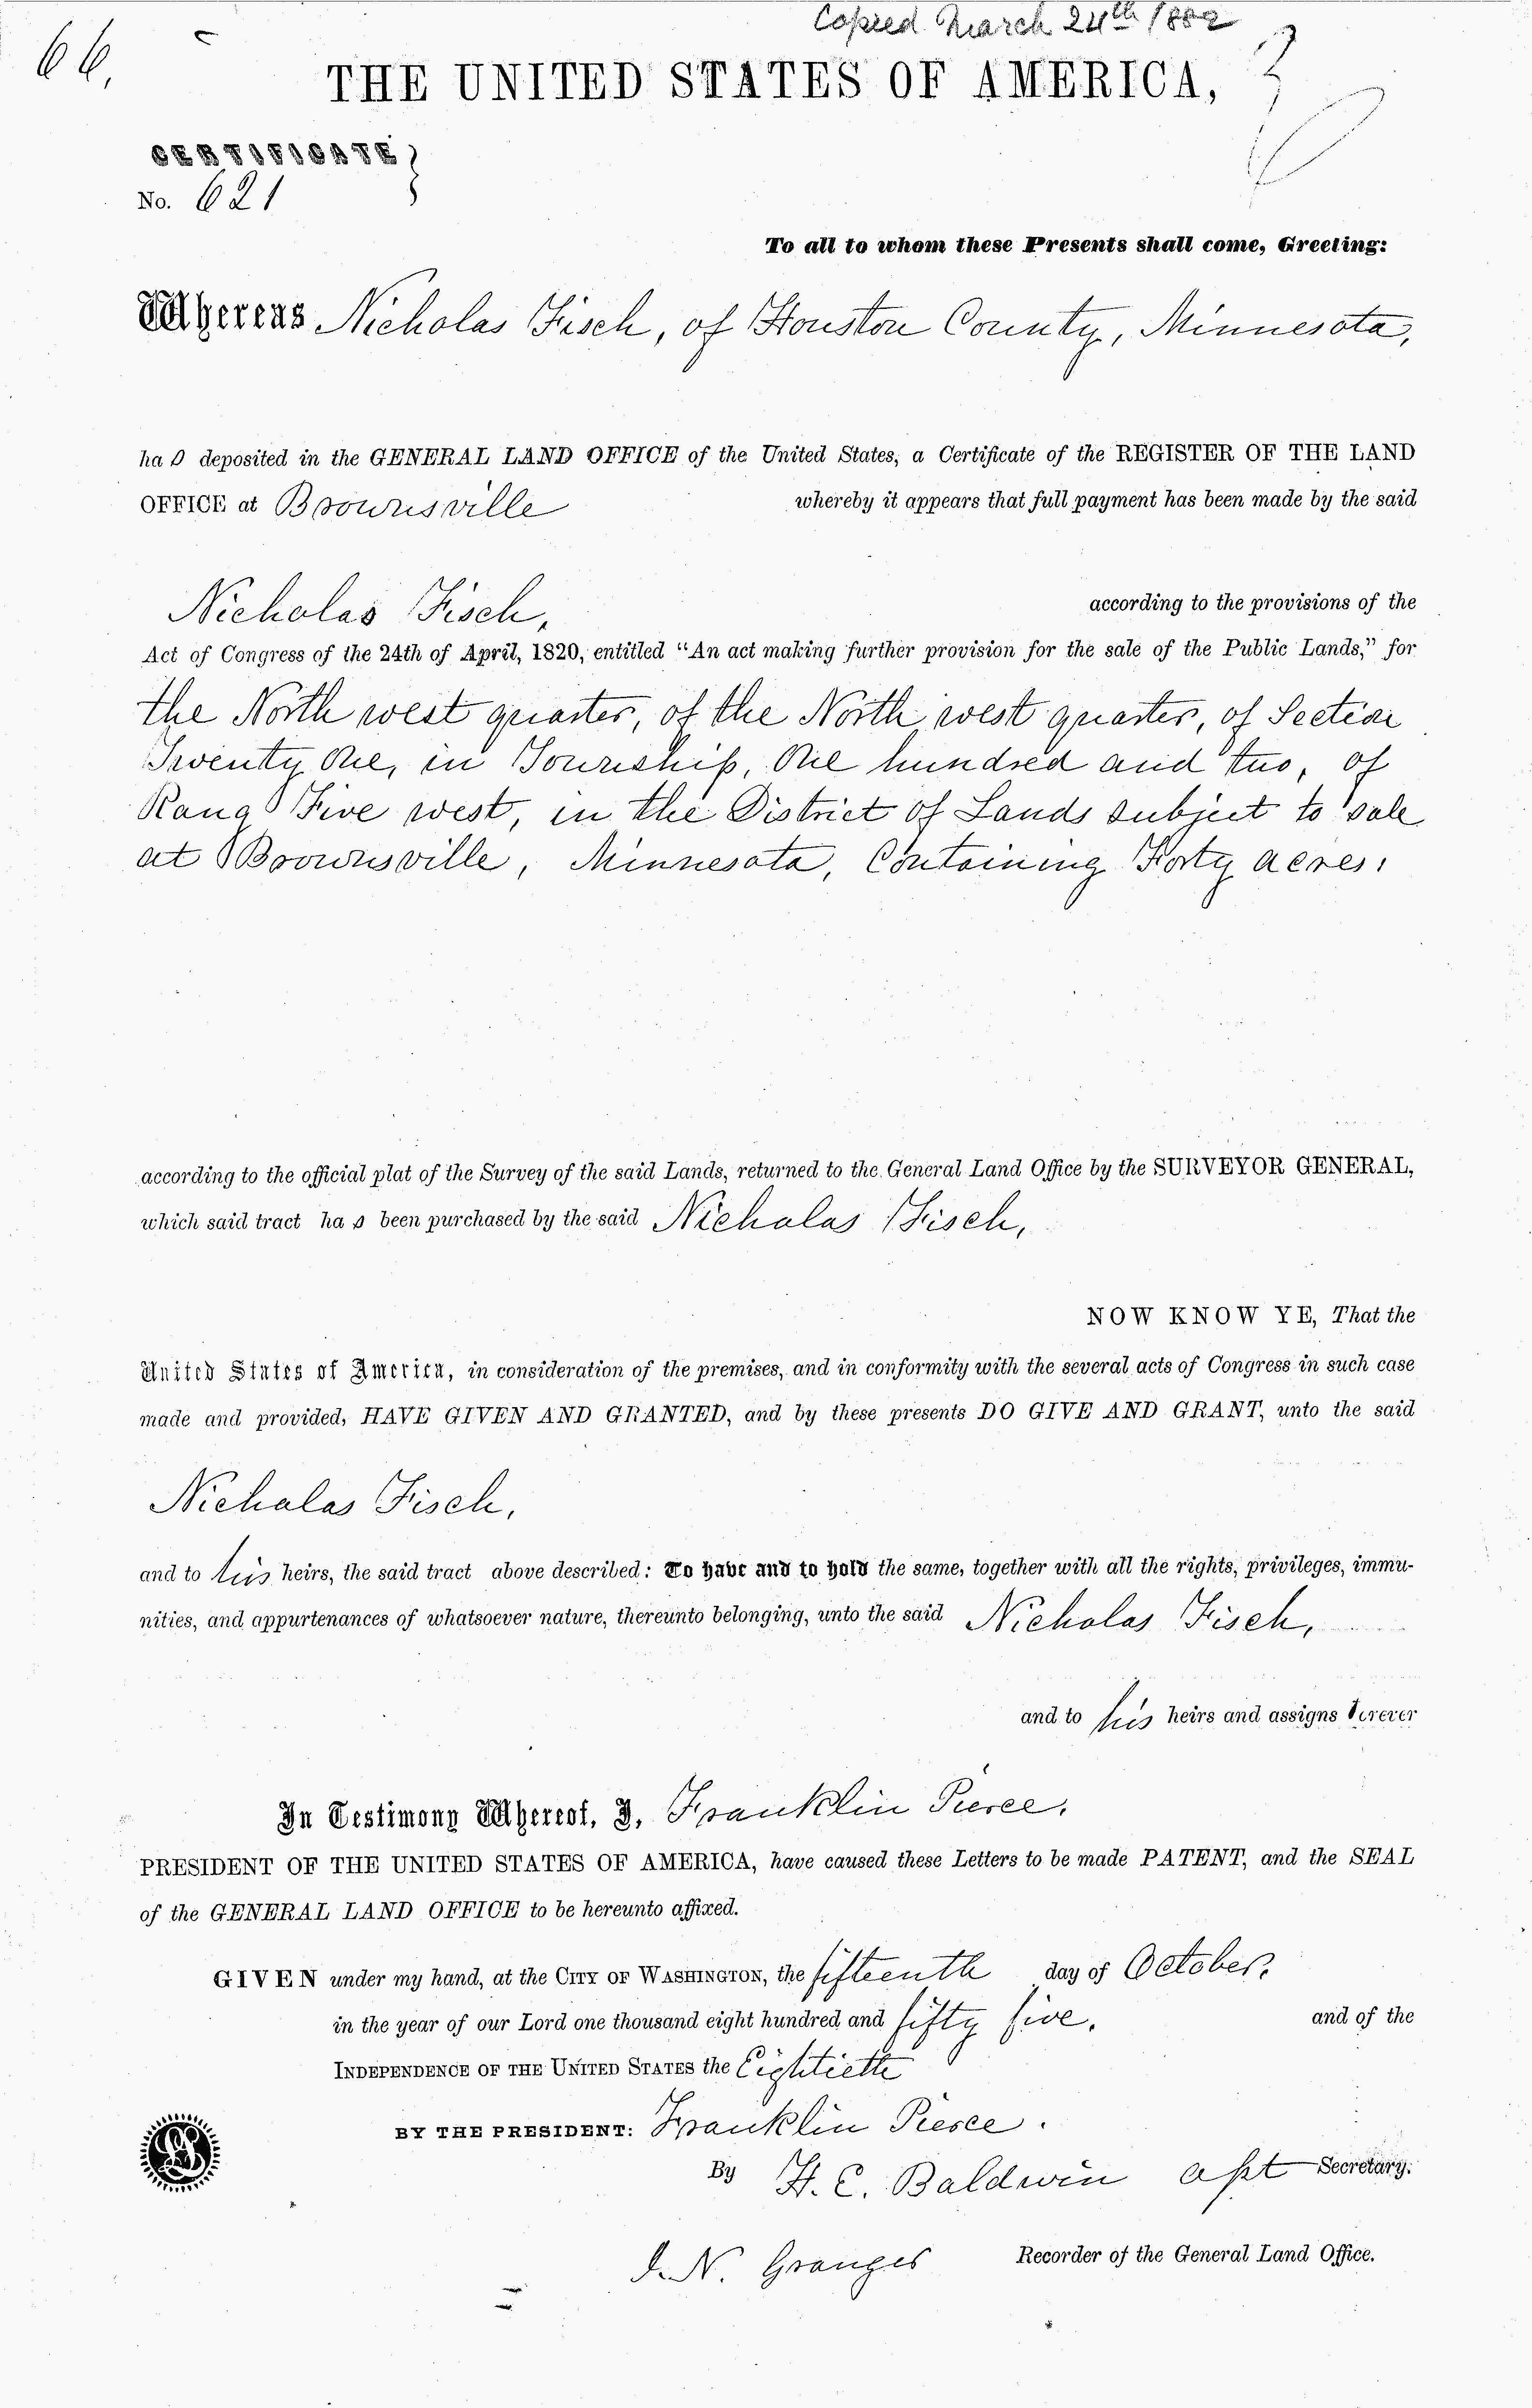 Copied March 24th 1882
66
THE UNITED STATES OF AMERICA,
CERTIFICATE
No. 621
To all to whom these Presents shall come, Greeting:
Whereas Nicholas Fisch, of Houston County, Minnesota,
has deposited in the GENERAL LAND OFFICE of the United States, a Certificate of the REGISTER OF THE LAND
OFFICE at Brownsville whereby it appears that full payment has been made by the said
Nicholas Fisch, according to the provisions of the
Act of Congress of the 24th of April, 1820, entitled “An act making further provision for the sale of the Public Lands,” for
the North west quarter, of the North west quarter, of Section
Twenty One, in Township, One hundred and two, of
Range Five west, in the District of Lands subject to sale
at Brownsville, Minnesota, Containing Forty acres,
according to the official plat of the Survey of the said Lands, returned to the General Land Office by the SURVEYOR GENERAL,
which said tract has been purchased by the said Nicholas Fisch,
NOW KNOW YE, That the
United States of America, in consideration of the premises, and in conformity with the several acts of Congress in such case
made and provided, HAVE GIVEN AND GRANTED, and by these presents DO GIVE AND GRANT, unto the said
Nicholas Fisch,
and to his heirs, the said tract above described: To have and to hold the same, together with all the rights, privileges, immu-
nities, and appurtenances of whatsoever nature, thereunto belonging, unto the said Nicholas Fisch,
and to his heirs and assigns forever
In Testimony Whereof, I, Franklin Pierce,
PRESIDENT OF THE UNITED STATES OF AMERICA, have caused these Letters to be made PATENT, and the SEAL
of the GENERAL LAND OFFICE to be hereunto affixed.
GIVEN under my hand, at the CITY OF WASHINGTON, the fifteenth day of October,
in the year of our Lord one thousand eight hundred and fifty five, and of the
INDEPENDENCE OF THE UNITED STATES the Eightieth
BY THE PRESIDENT: Franklin Pierce.
By H. C. Baldwin asst Secretary.
J. N. Granger Recorder of the General Land Office.